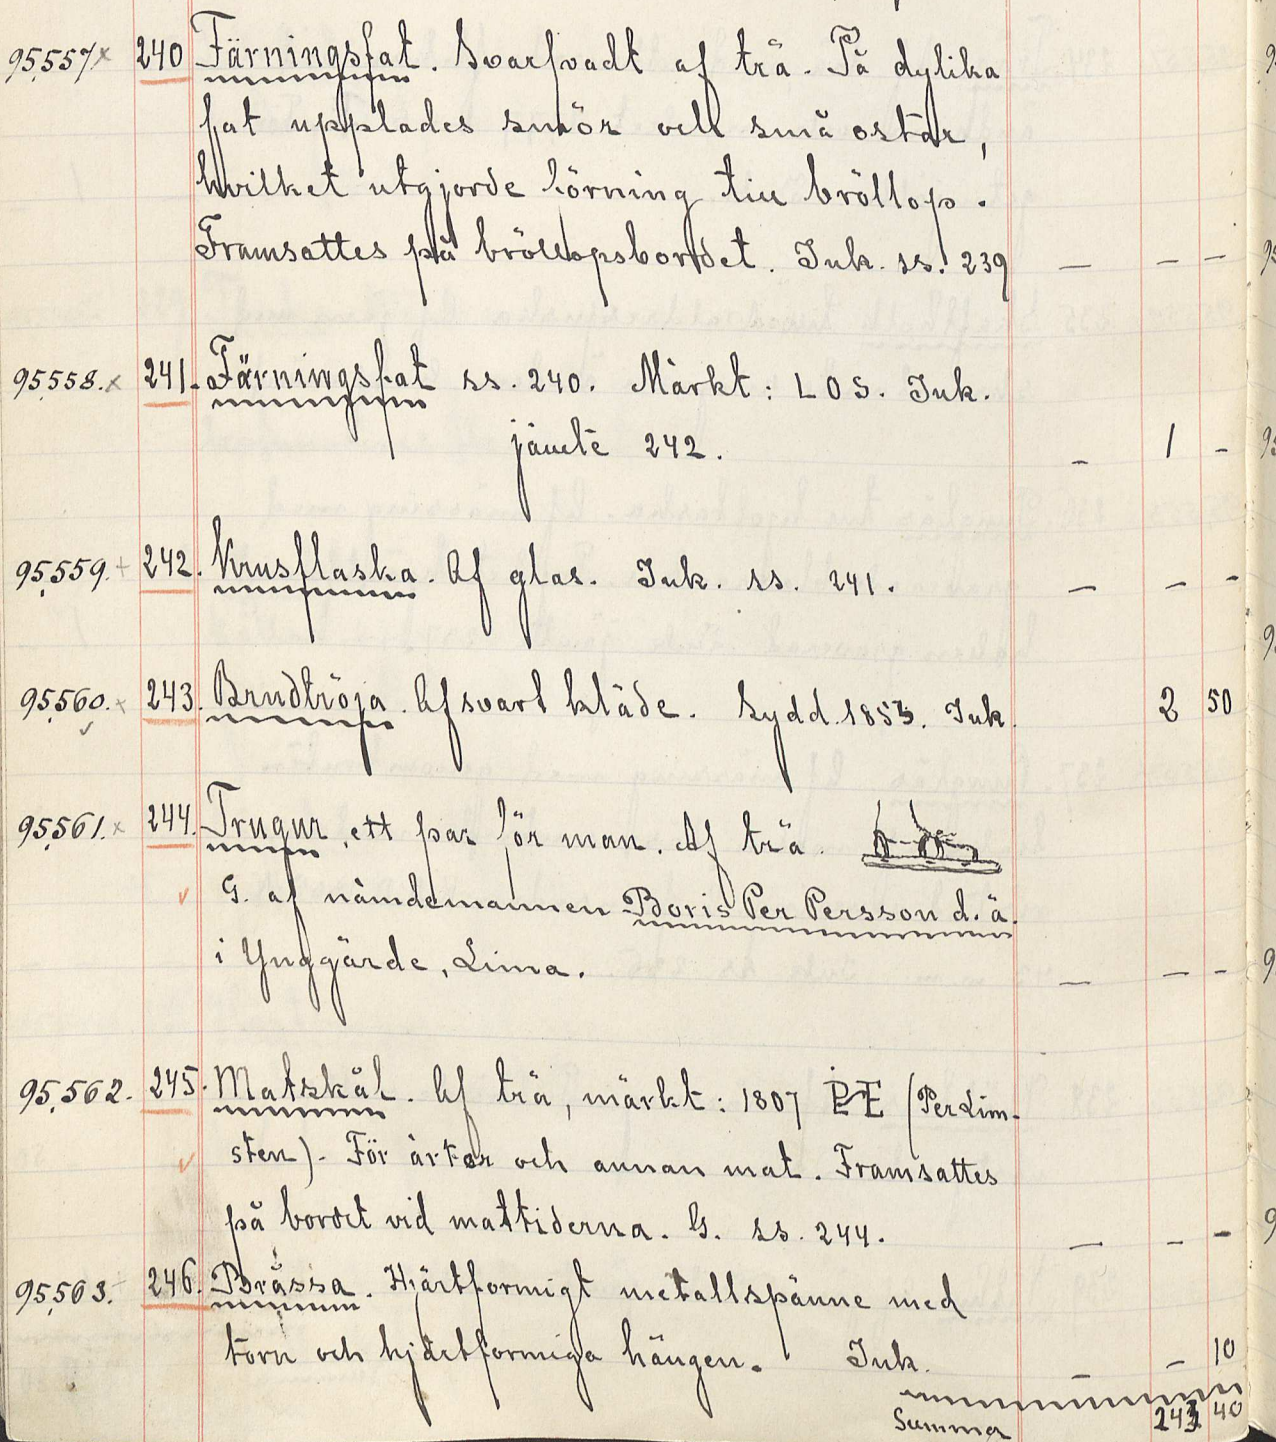 95,557 x 240 Färningsfat. Svarfvadt af trä. På dylika
fat upplades smör och små ostar,
hvilket utgjorde förning till bröllop.
Framsattes på bröllopsbordet. Ink. ss. 239 — — —
95,558. x 241. Färningsfat ss. 240. Märkt: L O S. Ink.
jämte 242. — 1 —
95,559. + 242. Krusflaska. Af glas. Ink. ss. 241. — — —
95,560. x 243. Brudtröja. Af svart kläde. Sydd 1853. Ink. 2 50
95,561. x 244. Trugur, ett par för man. Af trä.
G. af nämdemannen Boris Per Persson d. ä.
i Ynggärde, Lima. — — —
95,562. 245. Matskål. Af trä, märkt: 1807 (Per Lim-
sten). För ärter och annan mat. Framsattes
på bordet vid måltiderna. G. ss. 244. — — —
95,563. 246. Bråssa. Hjärtformigt metallspänne med
torn och hjärtformiga hängen. Ink. — — 10
Summa 40